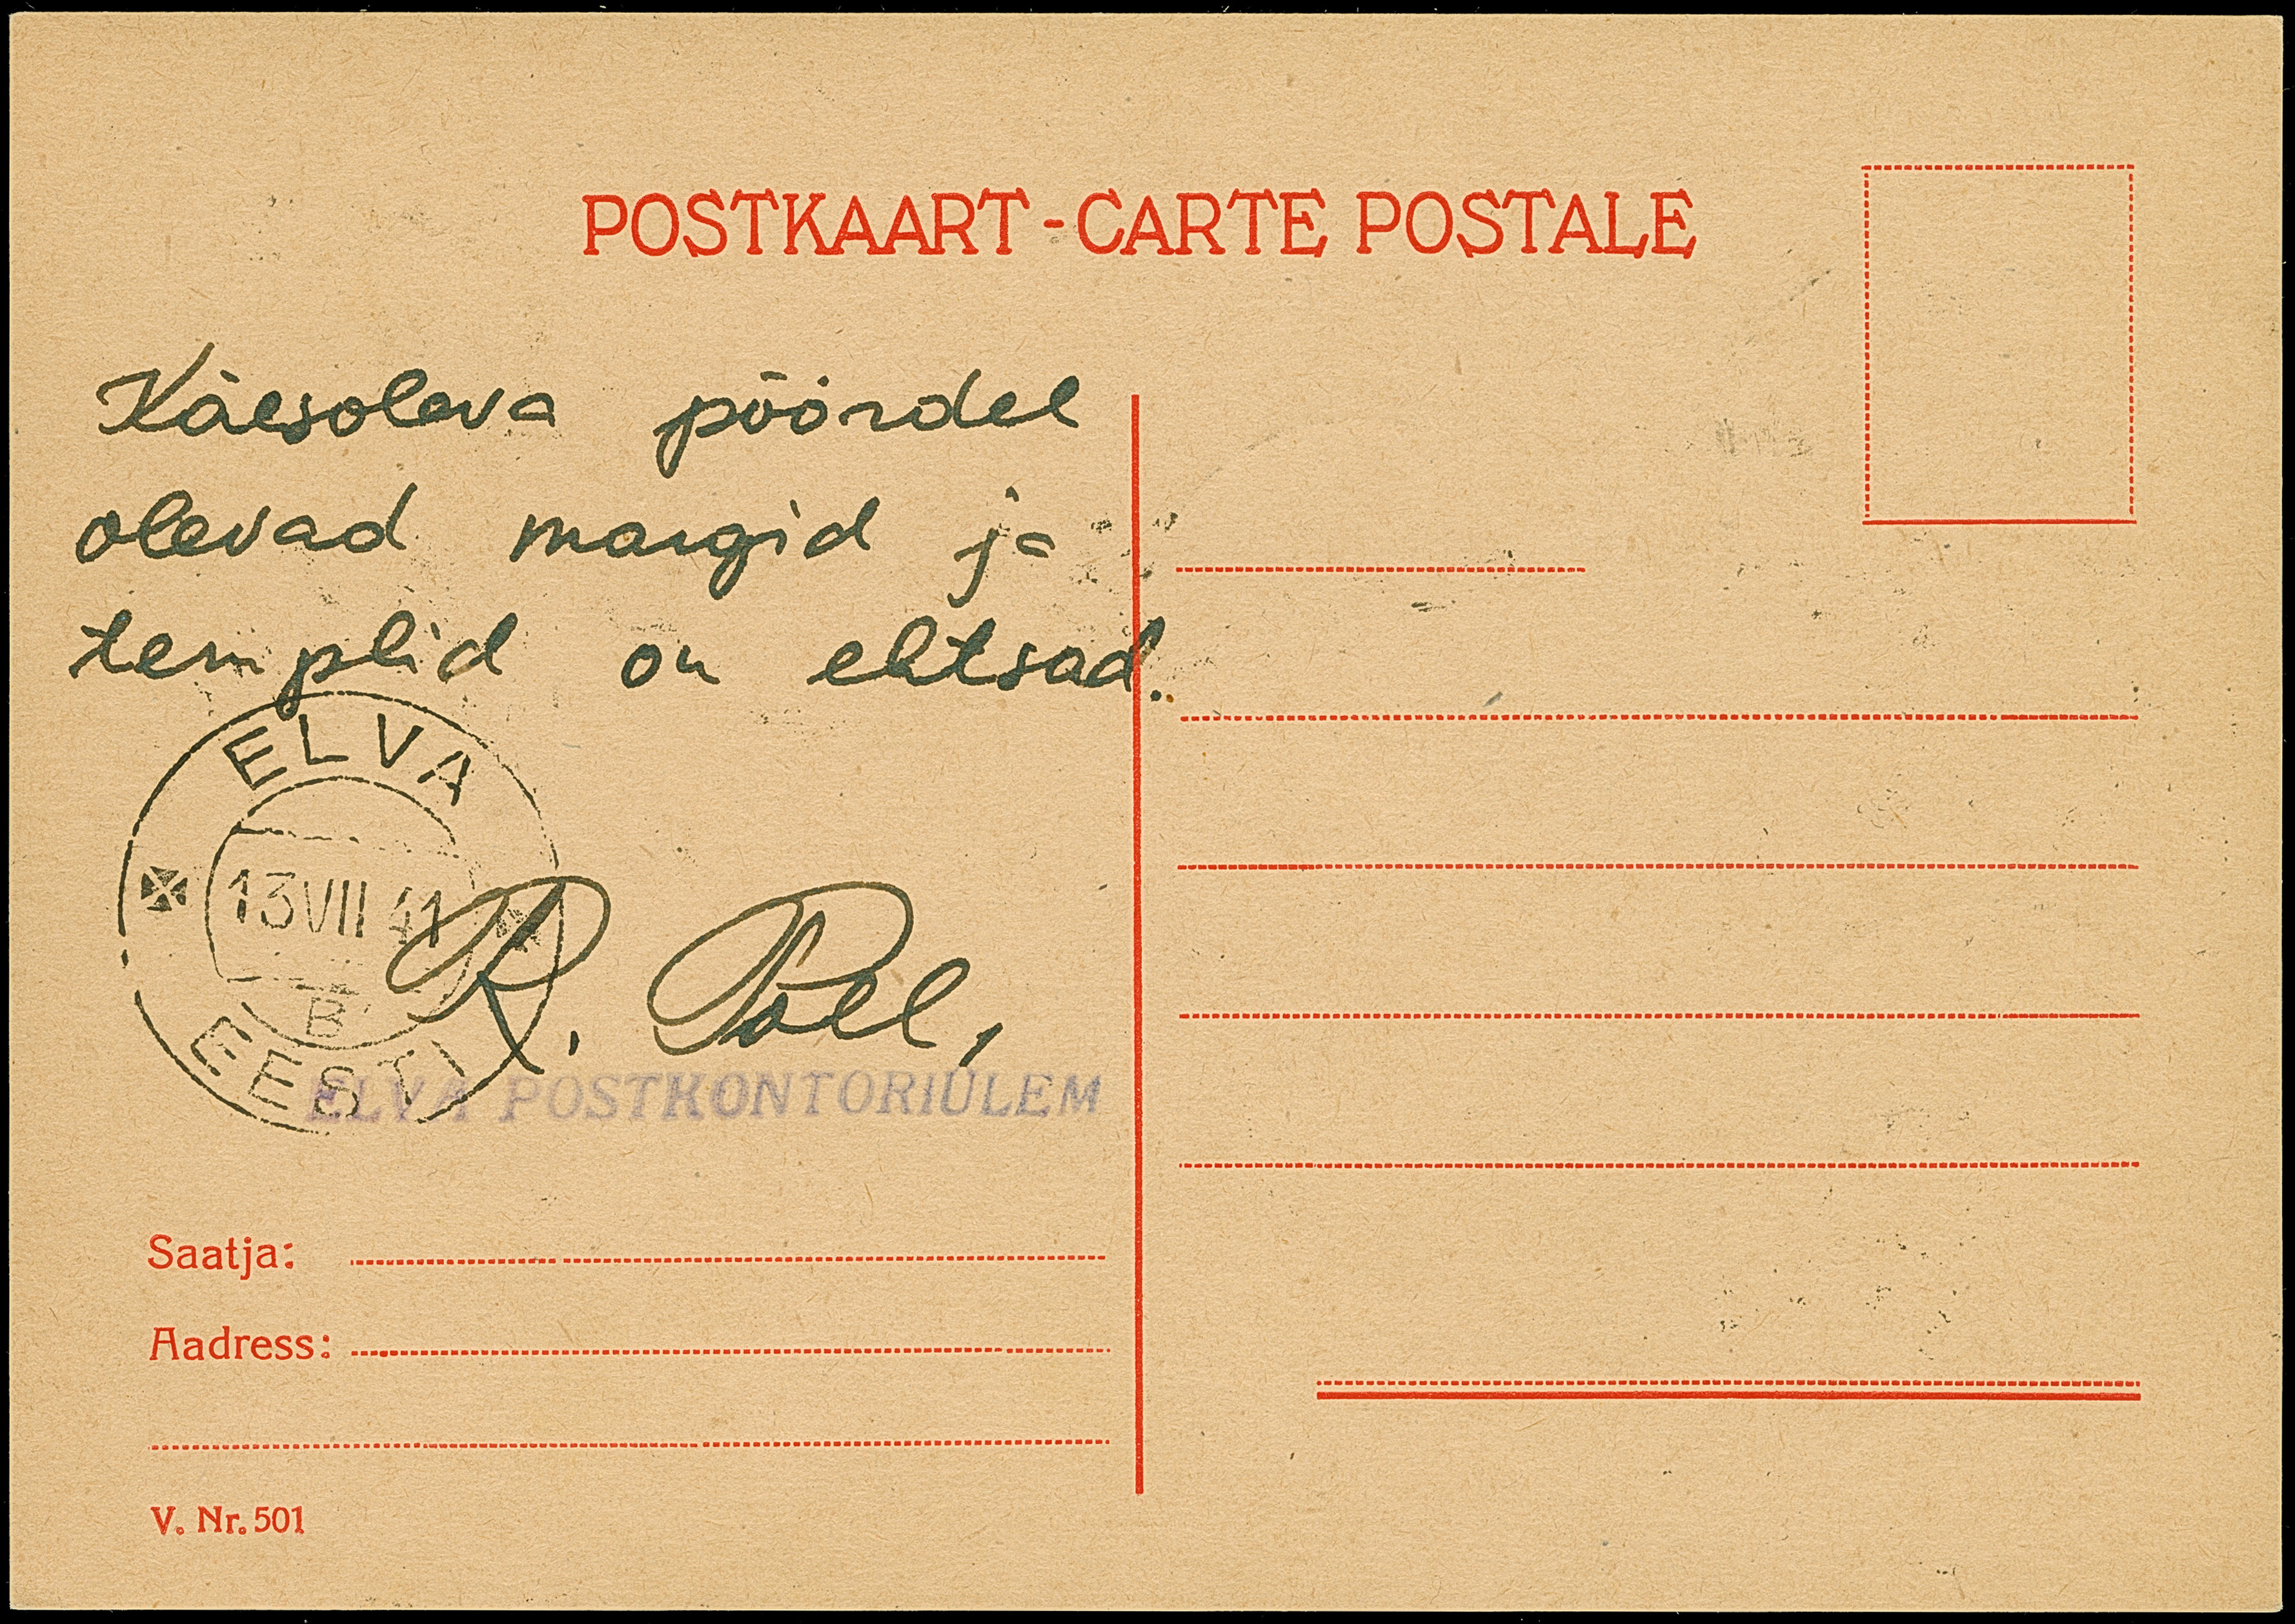 POSTKAART - CARTE POSTALE
Käesoleva pöördel
olevad margid ja
templid on ehtsad.
ELVA
13 VII 41
B
EESTI
R. Põll,
ELVA POSTKONTORIÜLEM
Saatja:
Aadress:
V. Nr. 501